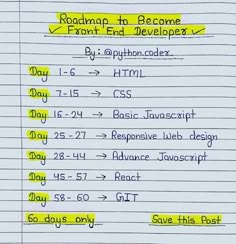 Roadmap to Become
✓ Front End Developer ✓
By : @python.coder_
Day 1-6 → HTML
Day 7-15 → CSS
Day 16-24 → Basic Javascript
Day 25-27 → Responsive Web design
Day 28-44 → Advance Javascript
Day 45-57 → React
Day 58-60 → GIT
60 days only Save this Post